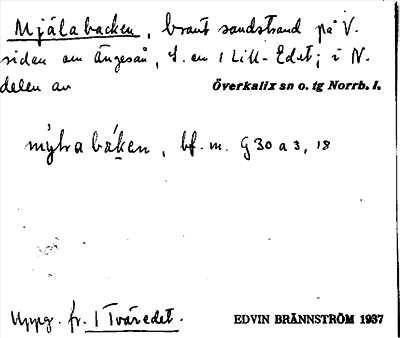 Mjälabacken, brant sandstrand på V.
sidan om Ängesån, S. om 1 Lill-Edet; i N.
delen av Överkalix sn o. tg Norrb. l.
bf. m. G 30 a 3, 18
Uppg. fr. 1 Tväredet. EDVIN BRÄNNSTRÖM 1937